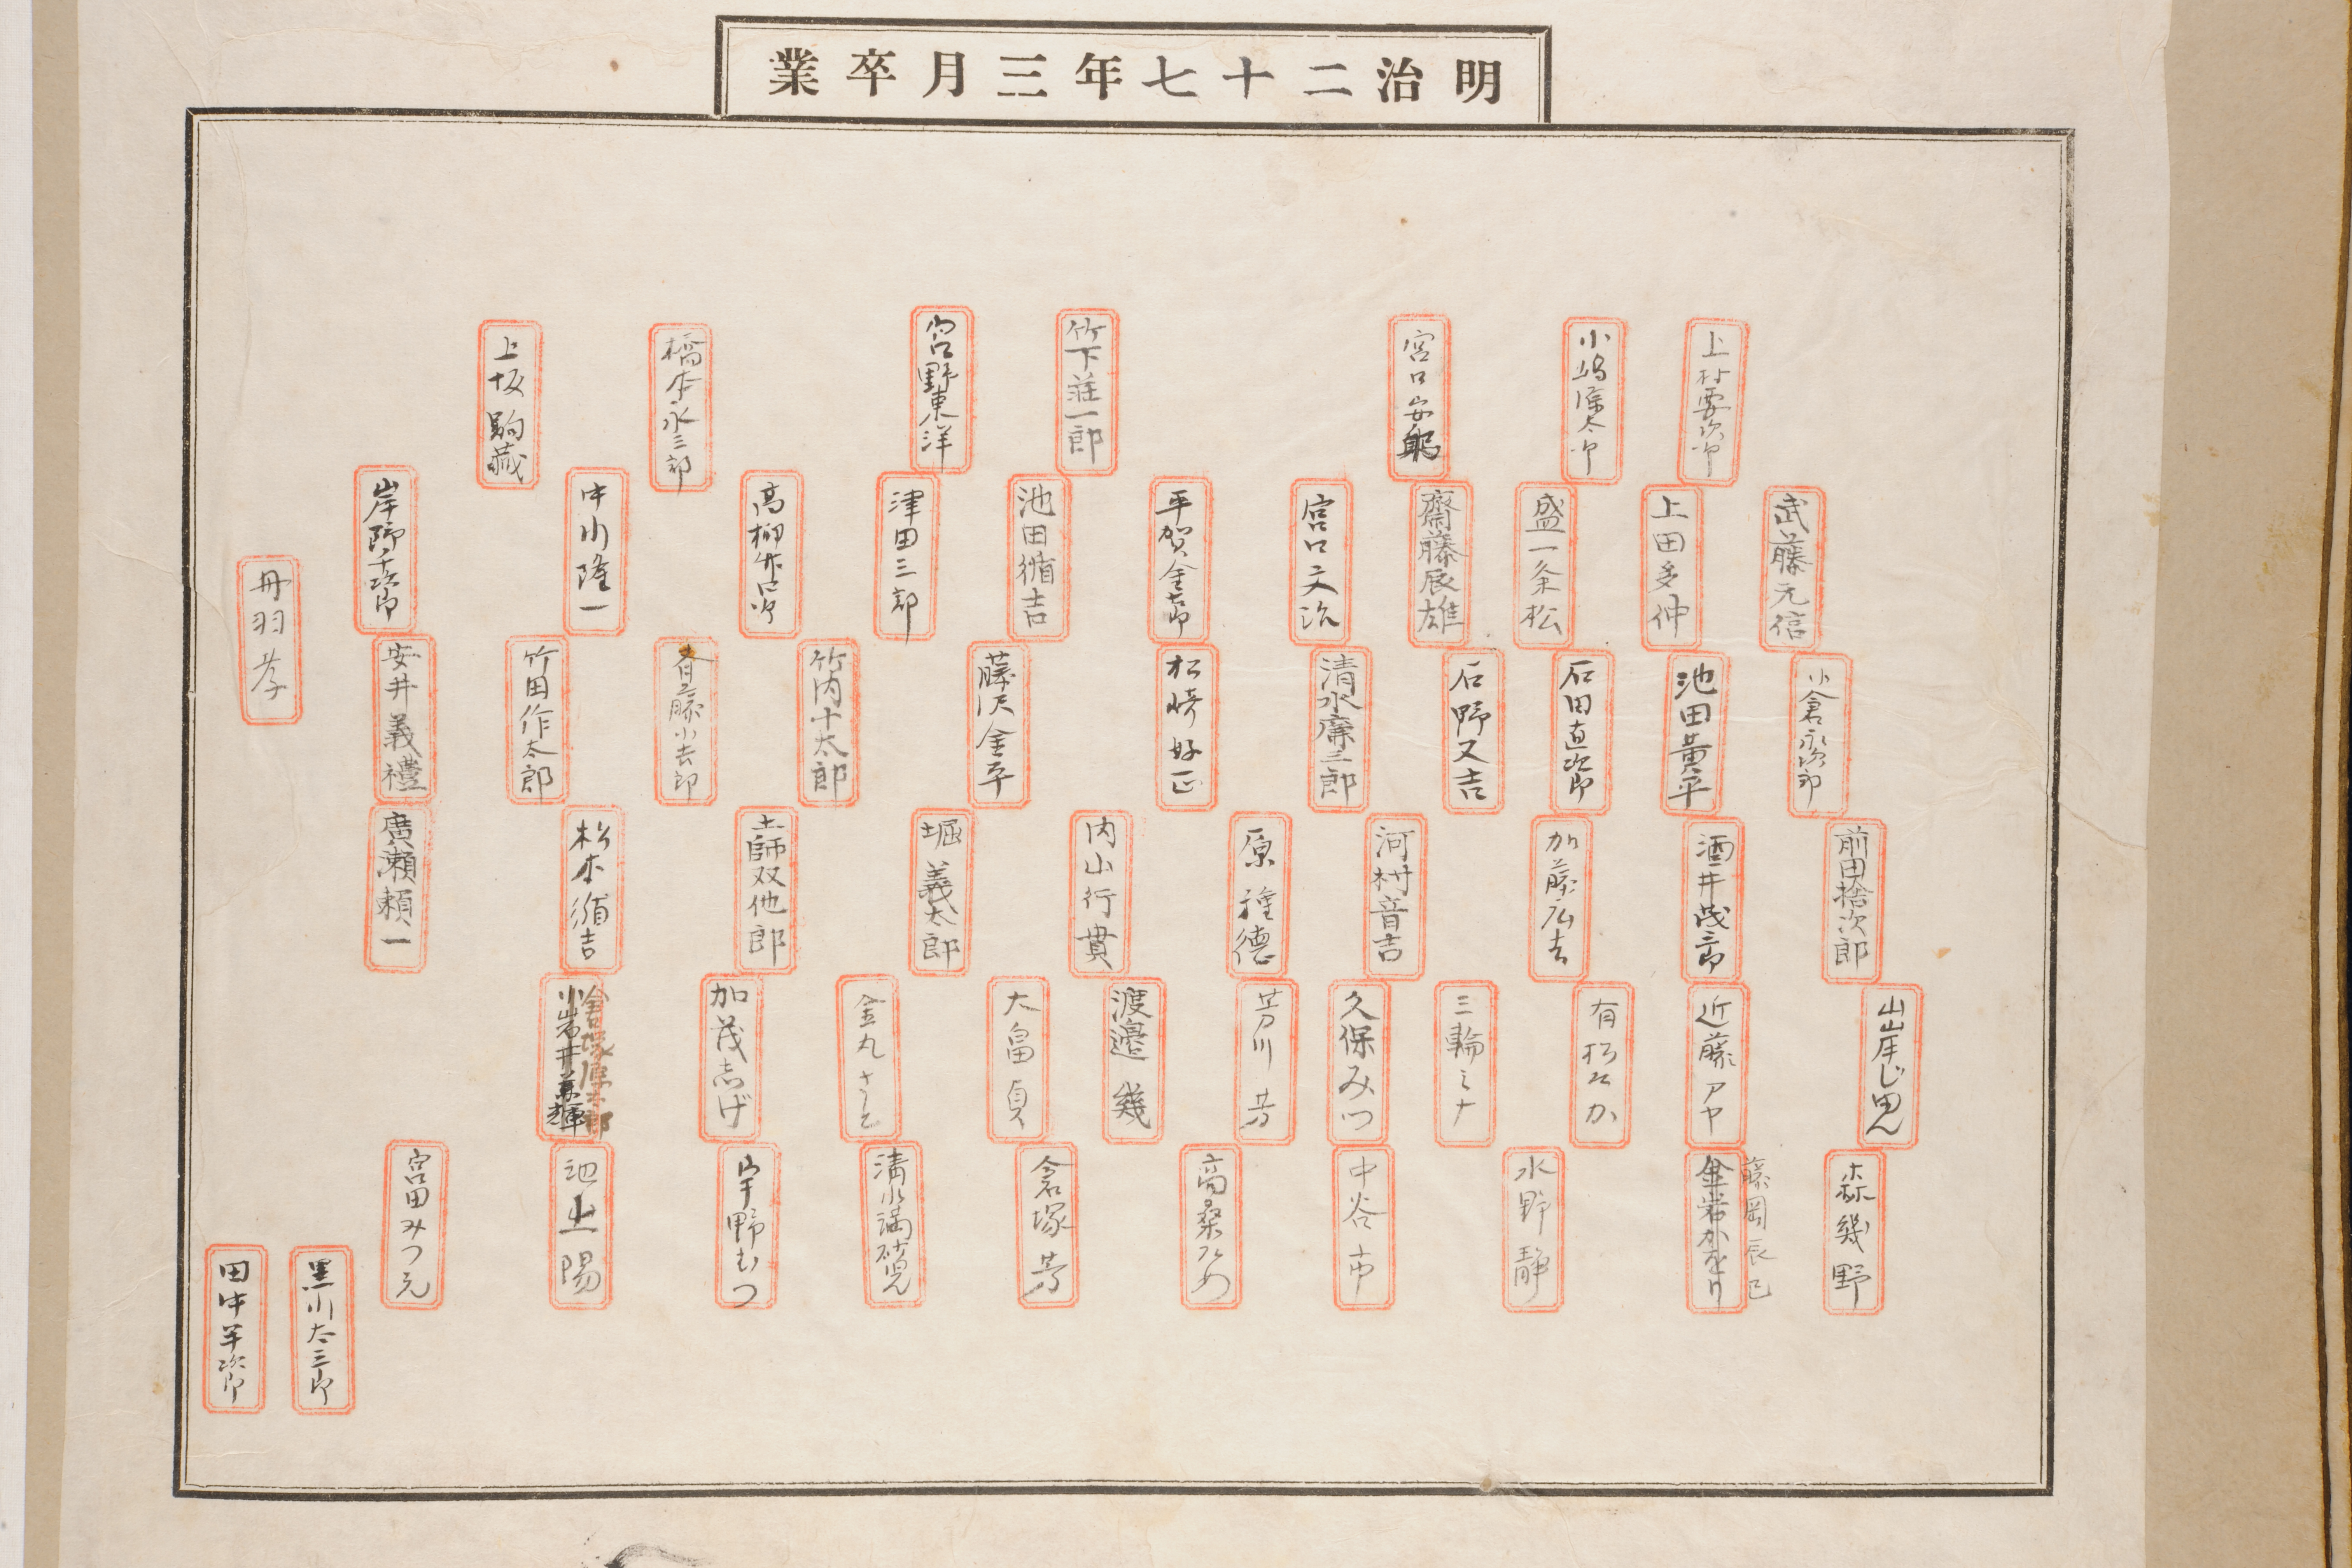 明治二十七年三月卒業
上村要次郎
小嶋篠太郎
宮口安
竹下荘一郎
宮野東洋
橋本永三郎
上坂駒蔵
武藤元信
上田多仲
盛一条松
齋藤辰雄
宮口文治
平賀金郎
池田循吉
津田三郎
高柳作次
中川隆一
岸野千次郎
丹羽孝
小倉永次郎
池田黄平
石田直次郎
石野又吉
清水廉三郎
松崎好正
藤沢金平
竹内十太郎
斉藤小太郎
竹田作太郎
安井義禮
前田捨次郎
酒井茂三郎
加藤広吉
河村音吉
原種徳
内山行貫
堀義太郎
土師双他郎
松本循吉
廣瀬頼一
山岸じ
近藤アヤ
有松
三輪ミナ
久保みつ
芳川芳
渡邉幾
大畠貞
金丸さと
加茂志げ
森幾野
藤岡辰巳
金岩かをり
水野静
中谷市
高桑ひめ
倉塚芳
清水満
宇野むつ
池上陽
宮田みつ元
黒川太三郎
田中羊次郎